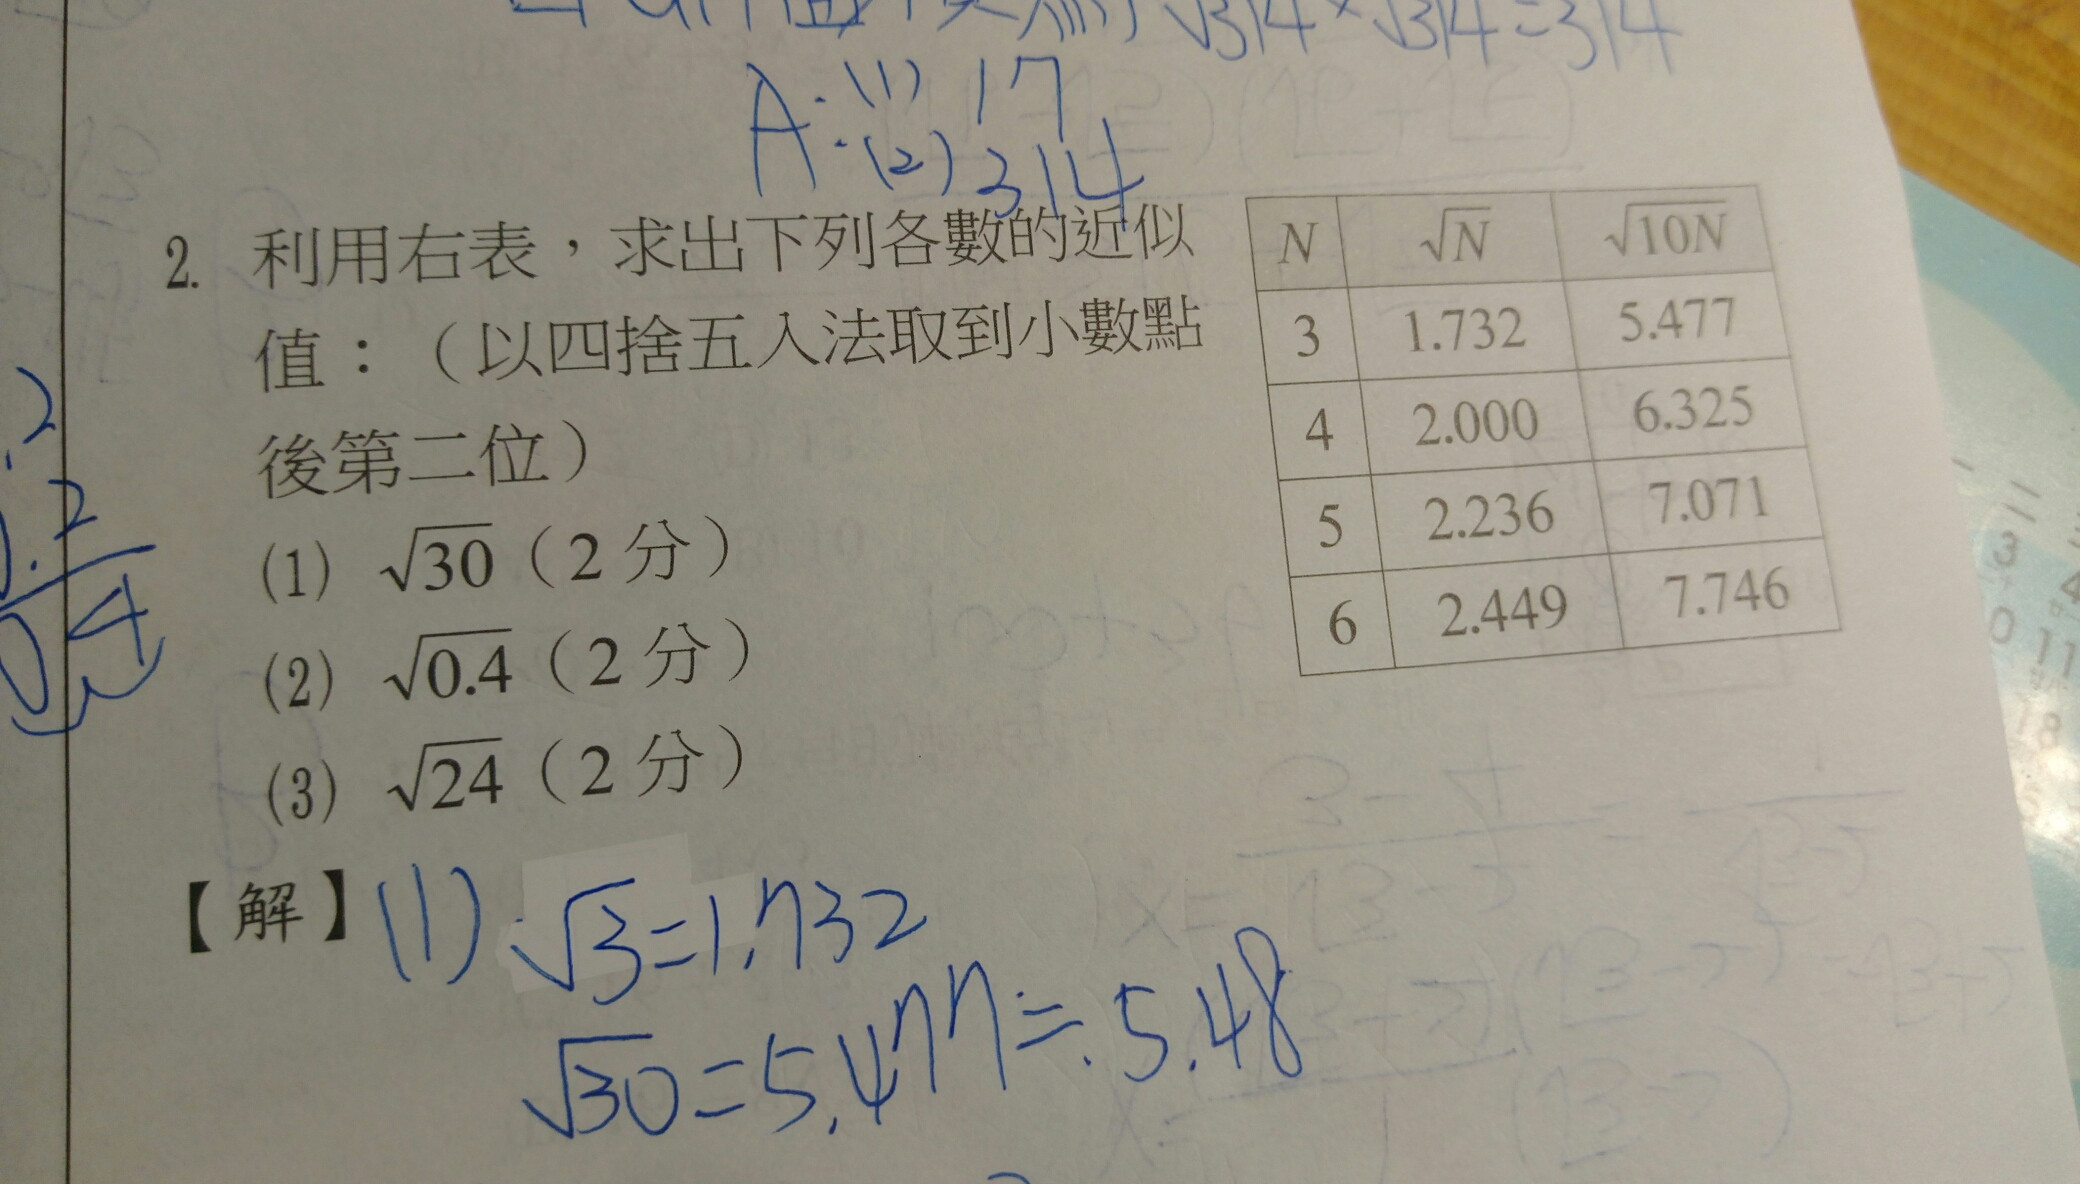 √314×√314=314
A:(1) 17
(2) 314
2. 利用右表，求出下列各數的近似
值：（以四捨五入法取到小數點
後第二位）
(1) √30（2分）
(2) √0.4（2分）
(3) √24（2分）
N √N √10N
3 1.732 5.477
4 2.000 6.325
5 2.236 7.071
6 2.449 7.746
【解】(1) √3=1.732
√30=5.477≒5.48